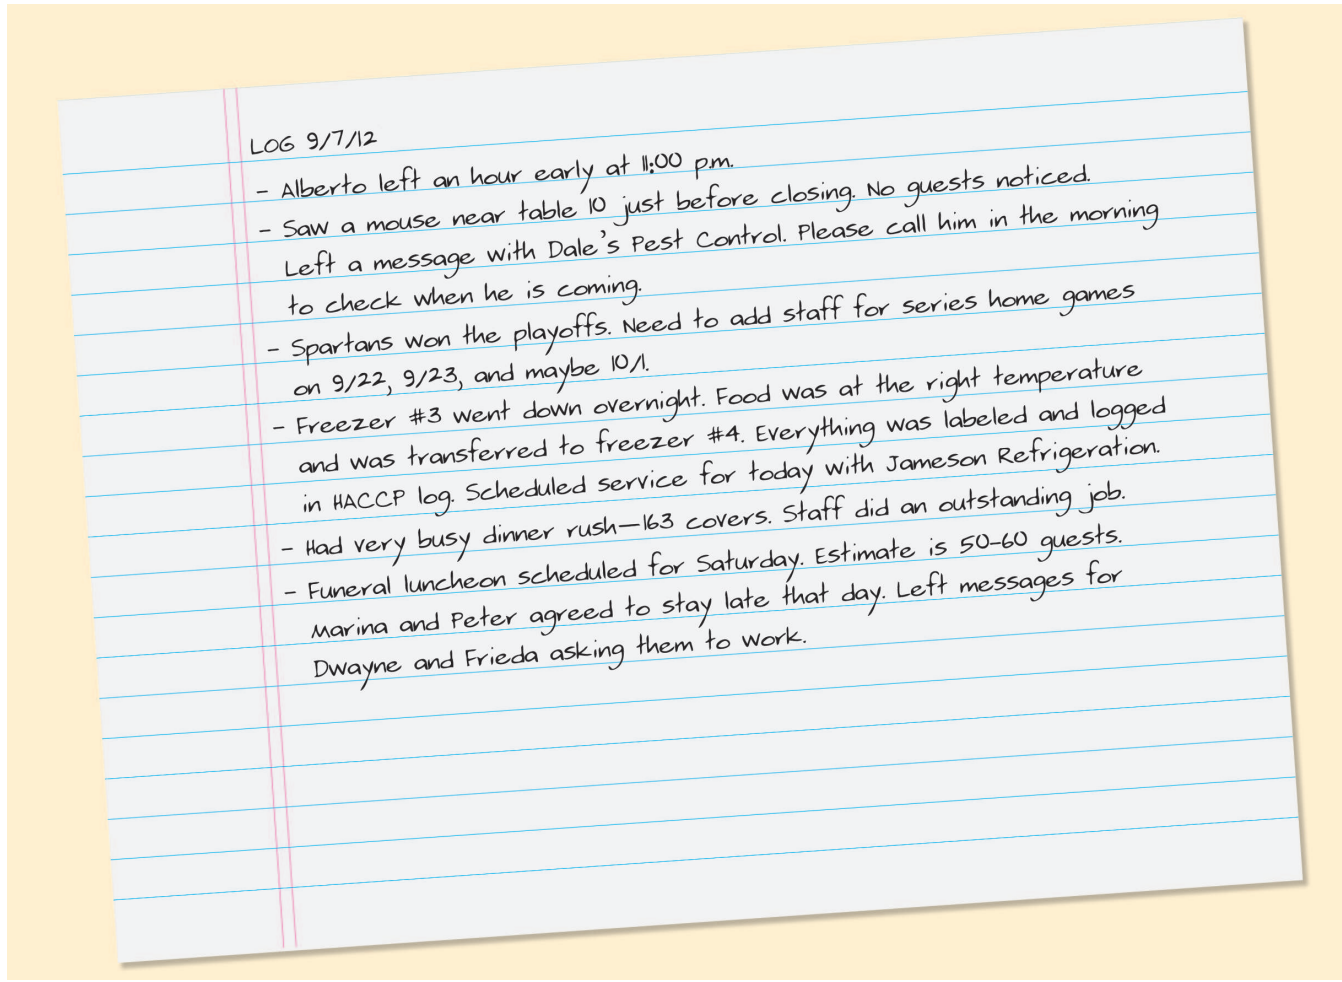 LOG 9/7/12
- Alberto left an hour early at 11:00 p.m.
- Saw a mouse near table 10 just before closing. No guests noticed.
Left a message with Dale's Pest Control. Please call him in the morning
to check when he is coming.
- Spartans won the playoffs. Need to add staff for series home games
on 9/22, 9/23, and maybe 10/1.
- Freezer #3 went down overnight. Food was at the right temperature
and was transferred to freezer #4. Everything was labeled and logged
in HACCP log. Scheduled service for today with Jameson Refrigeration.
- Had very busy dinner rush—163 covers. Staff did an outstanding job.
- Funeral luncheon scheduled for Saturday. Estimate is 50-60 guests.
Marina and Peter agreed to stay late that day. Left messages for
Dwayne and Frieda asking them to work.